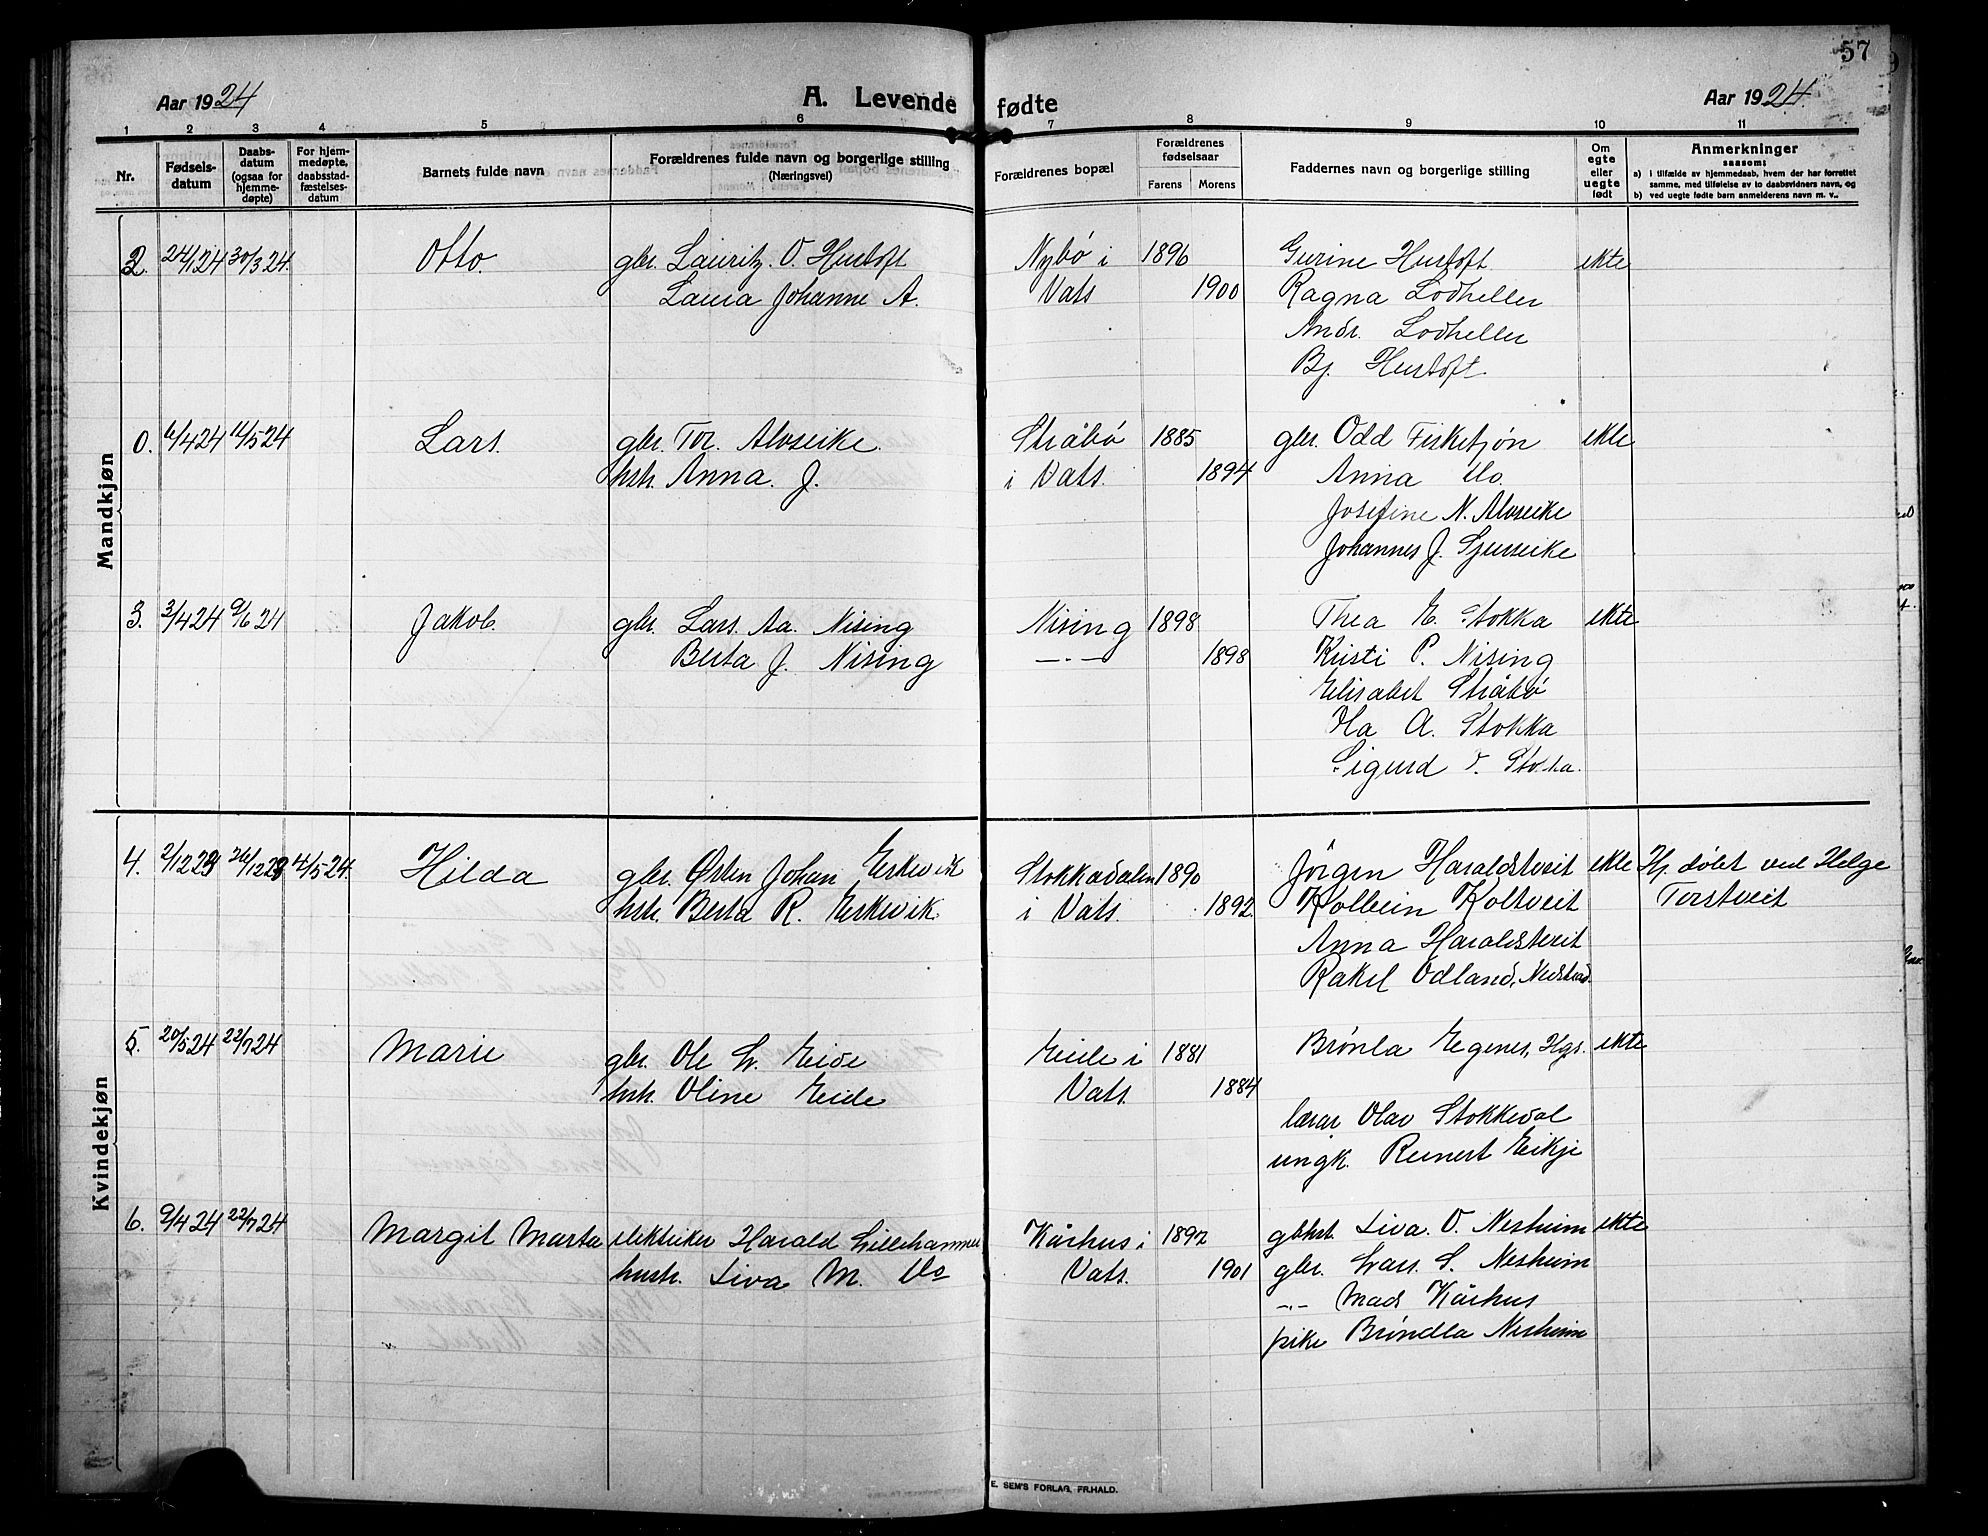 57
Aar 1924
A. Levende fødte
Aar 1924
1 2 3 4 5 6 7 8 9 10 11
Nr.
Fødsels-datum
Daabs-datum (ogsaa for hjemme-døpte)
For hjem-medøpte, daabsstad-fæstelses-datum
Barnets fulde navn
Forældrenes fulde navn og borgerlige stilling (Næringsvei)
Forældrenes bopæl
Forældrenes fødselsaar
Farens Morens
Faddernes navn og borgerlige stilling
Om egte eller uegte født
Anmerkninger
saasom:
a) i tilfælde av hjemmedaab, hvem der har forrettet samme, med tilføielse av to daabsvidners navn, og
b) ved uegte fødte barn anmelderens navn m. v..
Mandkjøn
2. 24/1 24 30/3 24. Otto. gbr. Lauritz. O. Hustoft Nybø i 1896 Gurine Hustoft ekte
Laura Johanne A. Vats 1900 Ragna Lodheller
Andr. Lodheller
Bj. Hustoft
0. 6/4 24 11/5 24 Lars. gbr. Tor. Alvseike. Stråbø 1885 gbr. Odd Fisketjøn ekte
hsh. Anna. J. i Vats. 1894 Anna do.
Josefine N. Alvseike
Johannes J. Sjurseike
3. 3/4 24 9/6 24 Jakob. gbr. Lars. Aa. Nising Nising 1898 Thea E. Stokka ekte
Berta J. Nising —.— 1898 Kristi P. Nising
Elisabet Stråbø
Ola A. Stokka
Sigurd Stokka.
Kvindekjøn
4. 2/12 23 26/12 23 4/5 24. Hilda gbr. Østen Johan Eskevik Stokkadalen 1890 Jörgen Haraldstveit ekte Hj. døbt ved Helge
hsh. Berta R. Eskevik i Vats. 1892. Kolbein Koltveit Torstveit
Anna Haraldstveit
Rakel Odland, Nedstrand.
5. 20/5 24 22/7 24 Marie gbr. Ole L. Eide Eide i 1881 Brønla Egenes, Hgs. ekte
hsh. Oline Eide Vats. 1884
lærar Olav Stokkedal
ungk. Reinert Eikje
6. 9/4 24 22/7 24 Margit Marta elektriker Harald Lillehammer Kårhus i 1897 gbhst. Siva O. Nesheim ekte
hustr. Siva M. do Vats. 1901 gbr. Lars. S. Nesheim
—.— Mads Kårhus
pike Brøndla Nesheim
E. SEM'S FORLAG, FR.HALD.